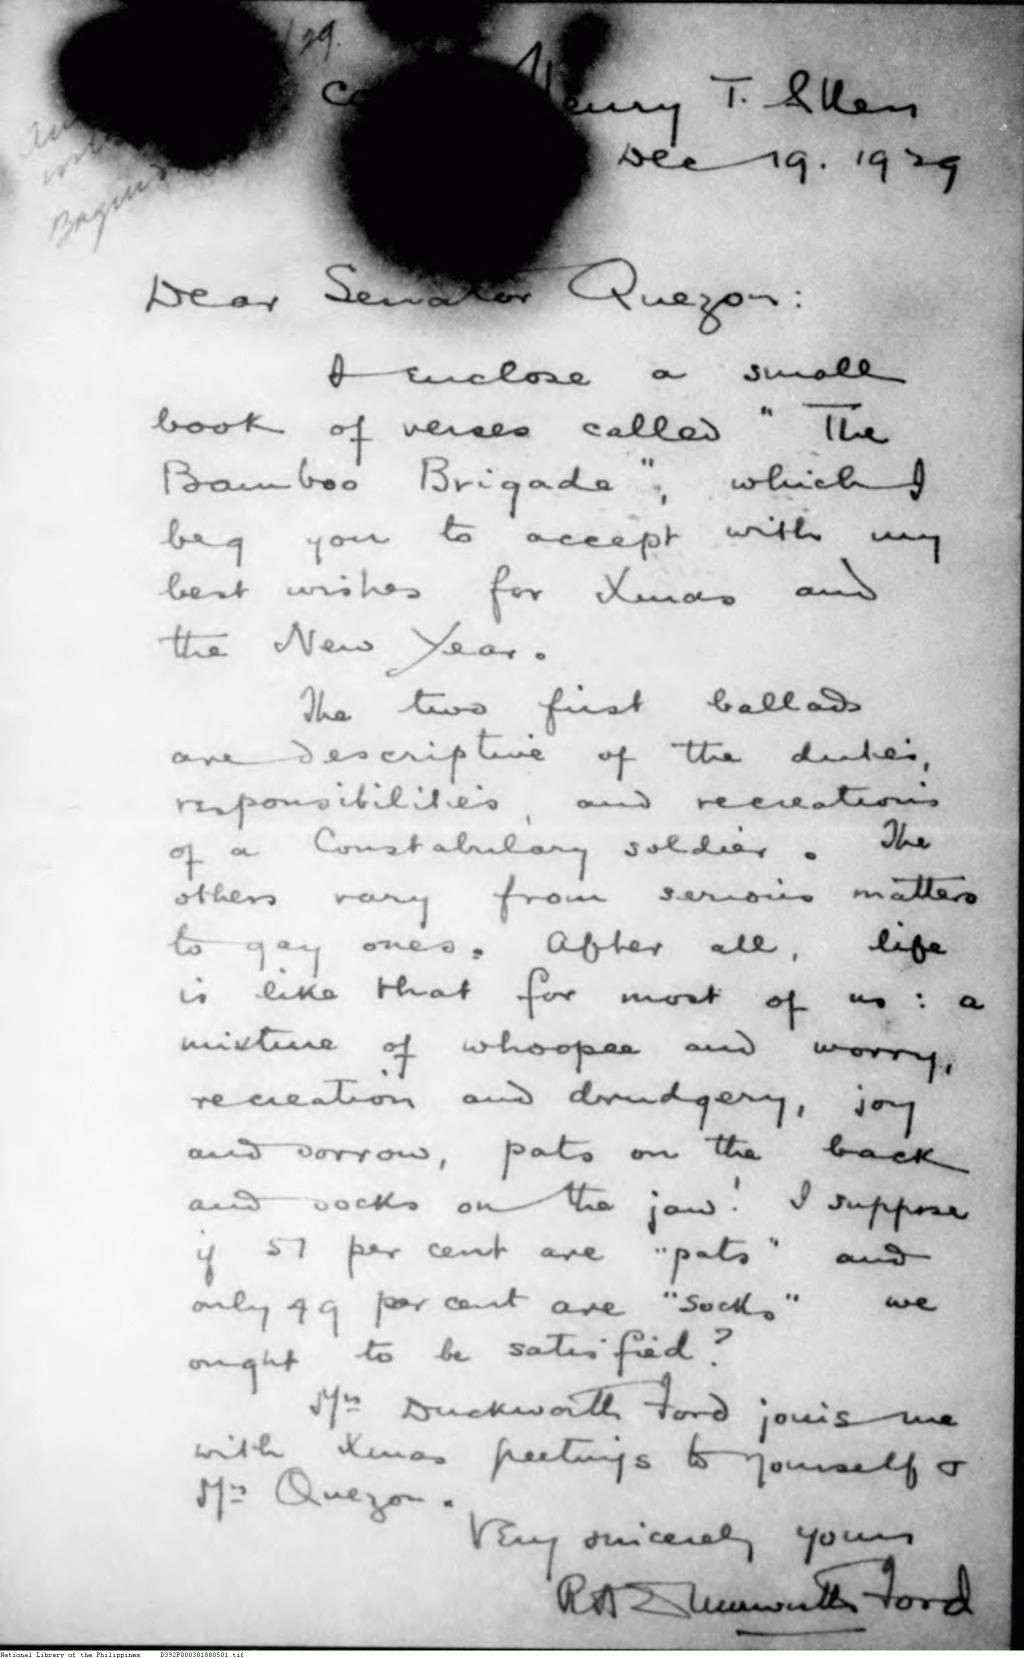 /29.
Henry T. Allen
Dec 19. 1929
Dear Senator Quezon:
I enclose a small
book of verses called " The
Bamboo Brigade ", which I
beg you to accept with my
best wishes for Xmas and
the New Year.
The two first ballads
are descriptive of the duties,
responsibilities, and recreations
of a Constabulary soldier. The
others vary from serious matters
to gay ones. After all, life
is like that for most of us : a
mixture of whoopee and worry,
recreation and drudgery, joy
and sorrow, pats on the back
and socks on the jaw! I suppose
if 51 per cent are "pats" and
only 49 per cent are "socks" we
ought to be satisfied?
Mrs Duckworth Ford joins me
with Xmas greetings to yourself &
Mrs Quezon.
Very sincerely yours
R A Duckworth Ford
National Library of the Philippines D392P000301880501.tif